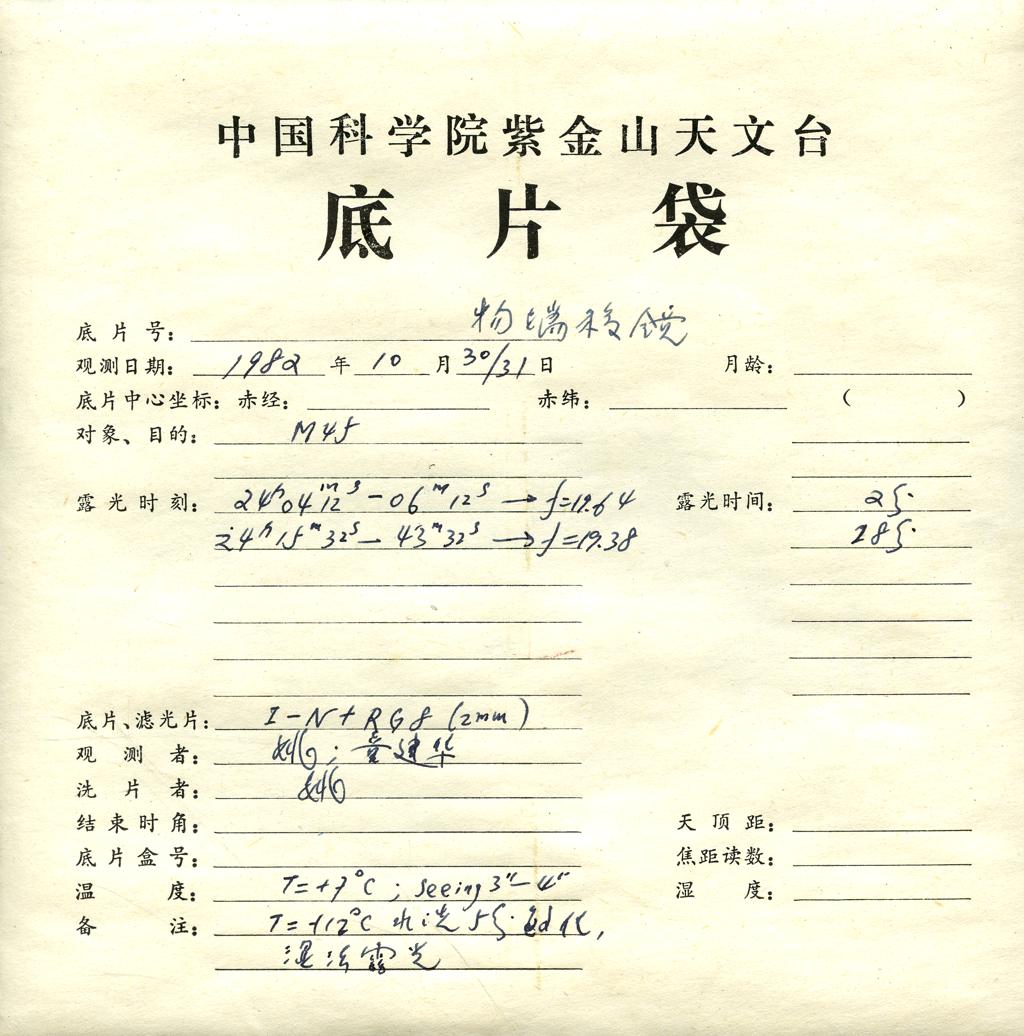 中国科学院紫金山天文台
底片袋
底片号: 物端棱镜
观测日期: 1982 年 10 月 30/31 日 月龄:
底片中心坐标: 赤经: 赤纬: ( )
对象、目的: M45
露光时刻: 24ʰ04ᵐ12ˢ-06ᵐ12ˢ → f=19.64 露光时间: 2分
24ʰ15ᵐ32ˢ-43ᵐ32ˢ → f=19.38 28分
底片、滤光片: I-N+RG8 (2mm)
观测者: ; 童建华
洗片者:
结束时角: 天顶距:
底片盒号: 焦距读数:
温度: T=+7°C ; seeing 3"-4" 湿度:
备注: T=+12°C 水洗 5分 敏化,
湿法露光